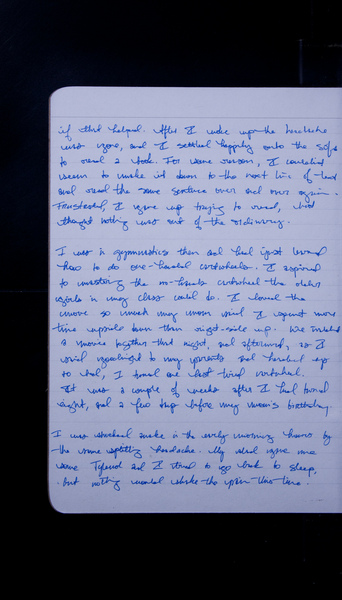 if that helped. After I woke up the headache
was gone, and I settled happily onto the sofa
to read a book. For some reason, I couldn't
seem to make it down to the next line of text
and read the same sentence over and over again.
Frustrated, I gave up trying to read, but
thought nothing was out of the ordinary.
I was in gymnastics then and had just learned
how to do one-handed cartwheels. I aspired
to mastering the no-hands cartwheel the older
girls in my class could do. I loved the
move so much my mom said I spent more
time upside down than right-side up. We watched
a movie together that night, and afterward, as I
said goodnight to my parents and headed up
to bed, I turned one last tired cartwheel.
It was a couple of weeks after I had turned
eight, and a few days before my mom's birthday.
I was awake in the early morning hours by
the same splitting headache. My dad gave me
some Tylenol and I tried to go back to sleep,
but nothing would the pain this time.